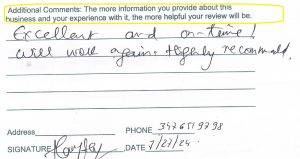 Additional Comments: The more information you provide about this
business and your experience with it, the more helpful your review will be.
Excellent and on-time!
will work again. Highly recommend.
Address PHONE 347 651 9798
SIGNATURE DATE 7/27/24